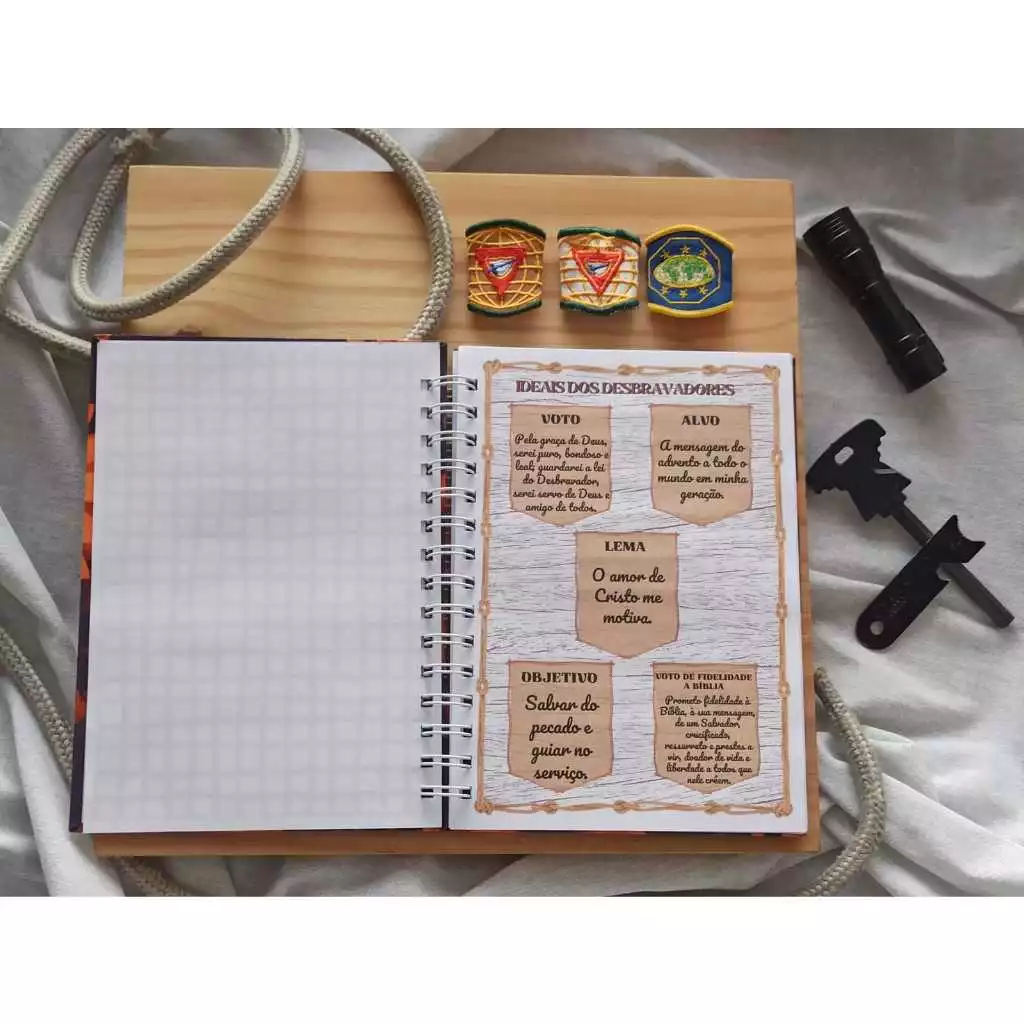 IDEAIS DOS DESBRAVADORES
VOTO
Pela graça de Deus,
serei puro, bondoso e
leal; guardarei a lei
do Desbravador,
serei servo de Deus e
amigo de todos.
ALVO
A mensagem do
advento a todo o
mundo em minha
geração.
LEMA
O amor de
Cristo me
motiva.
OBJETIVO
Salvar do
pecado e
guiar no
serviço.
VOTO DE FIDELIDADE
A BÍBLIA
Prometo fidelidade à
Bíblia, à sua mensagem,
de um Salvador,
crucificado,
ressurreto e prestes a
vir, doador de vida e
liberdade a todos que
nele crêem.